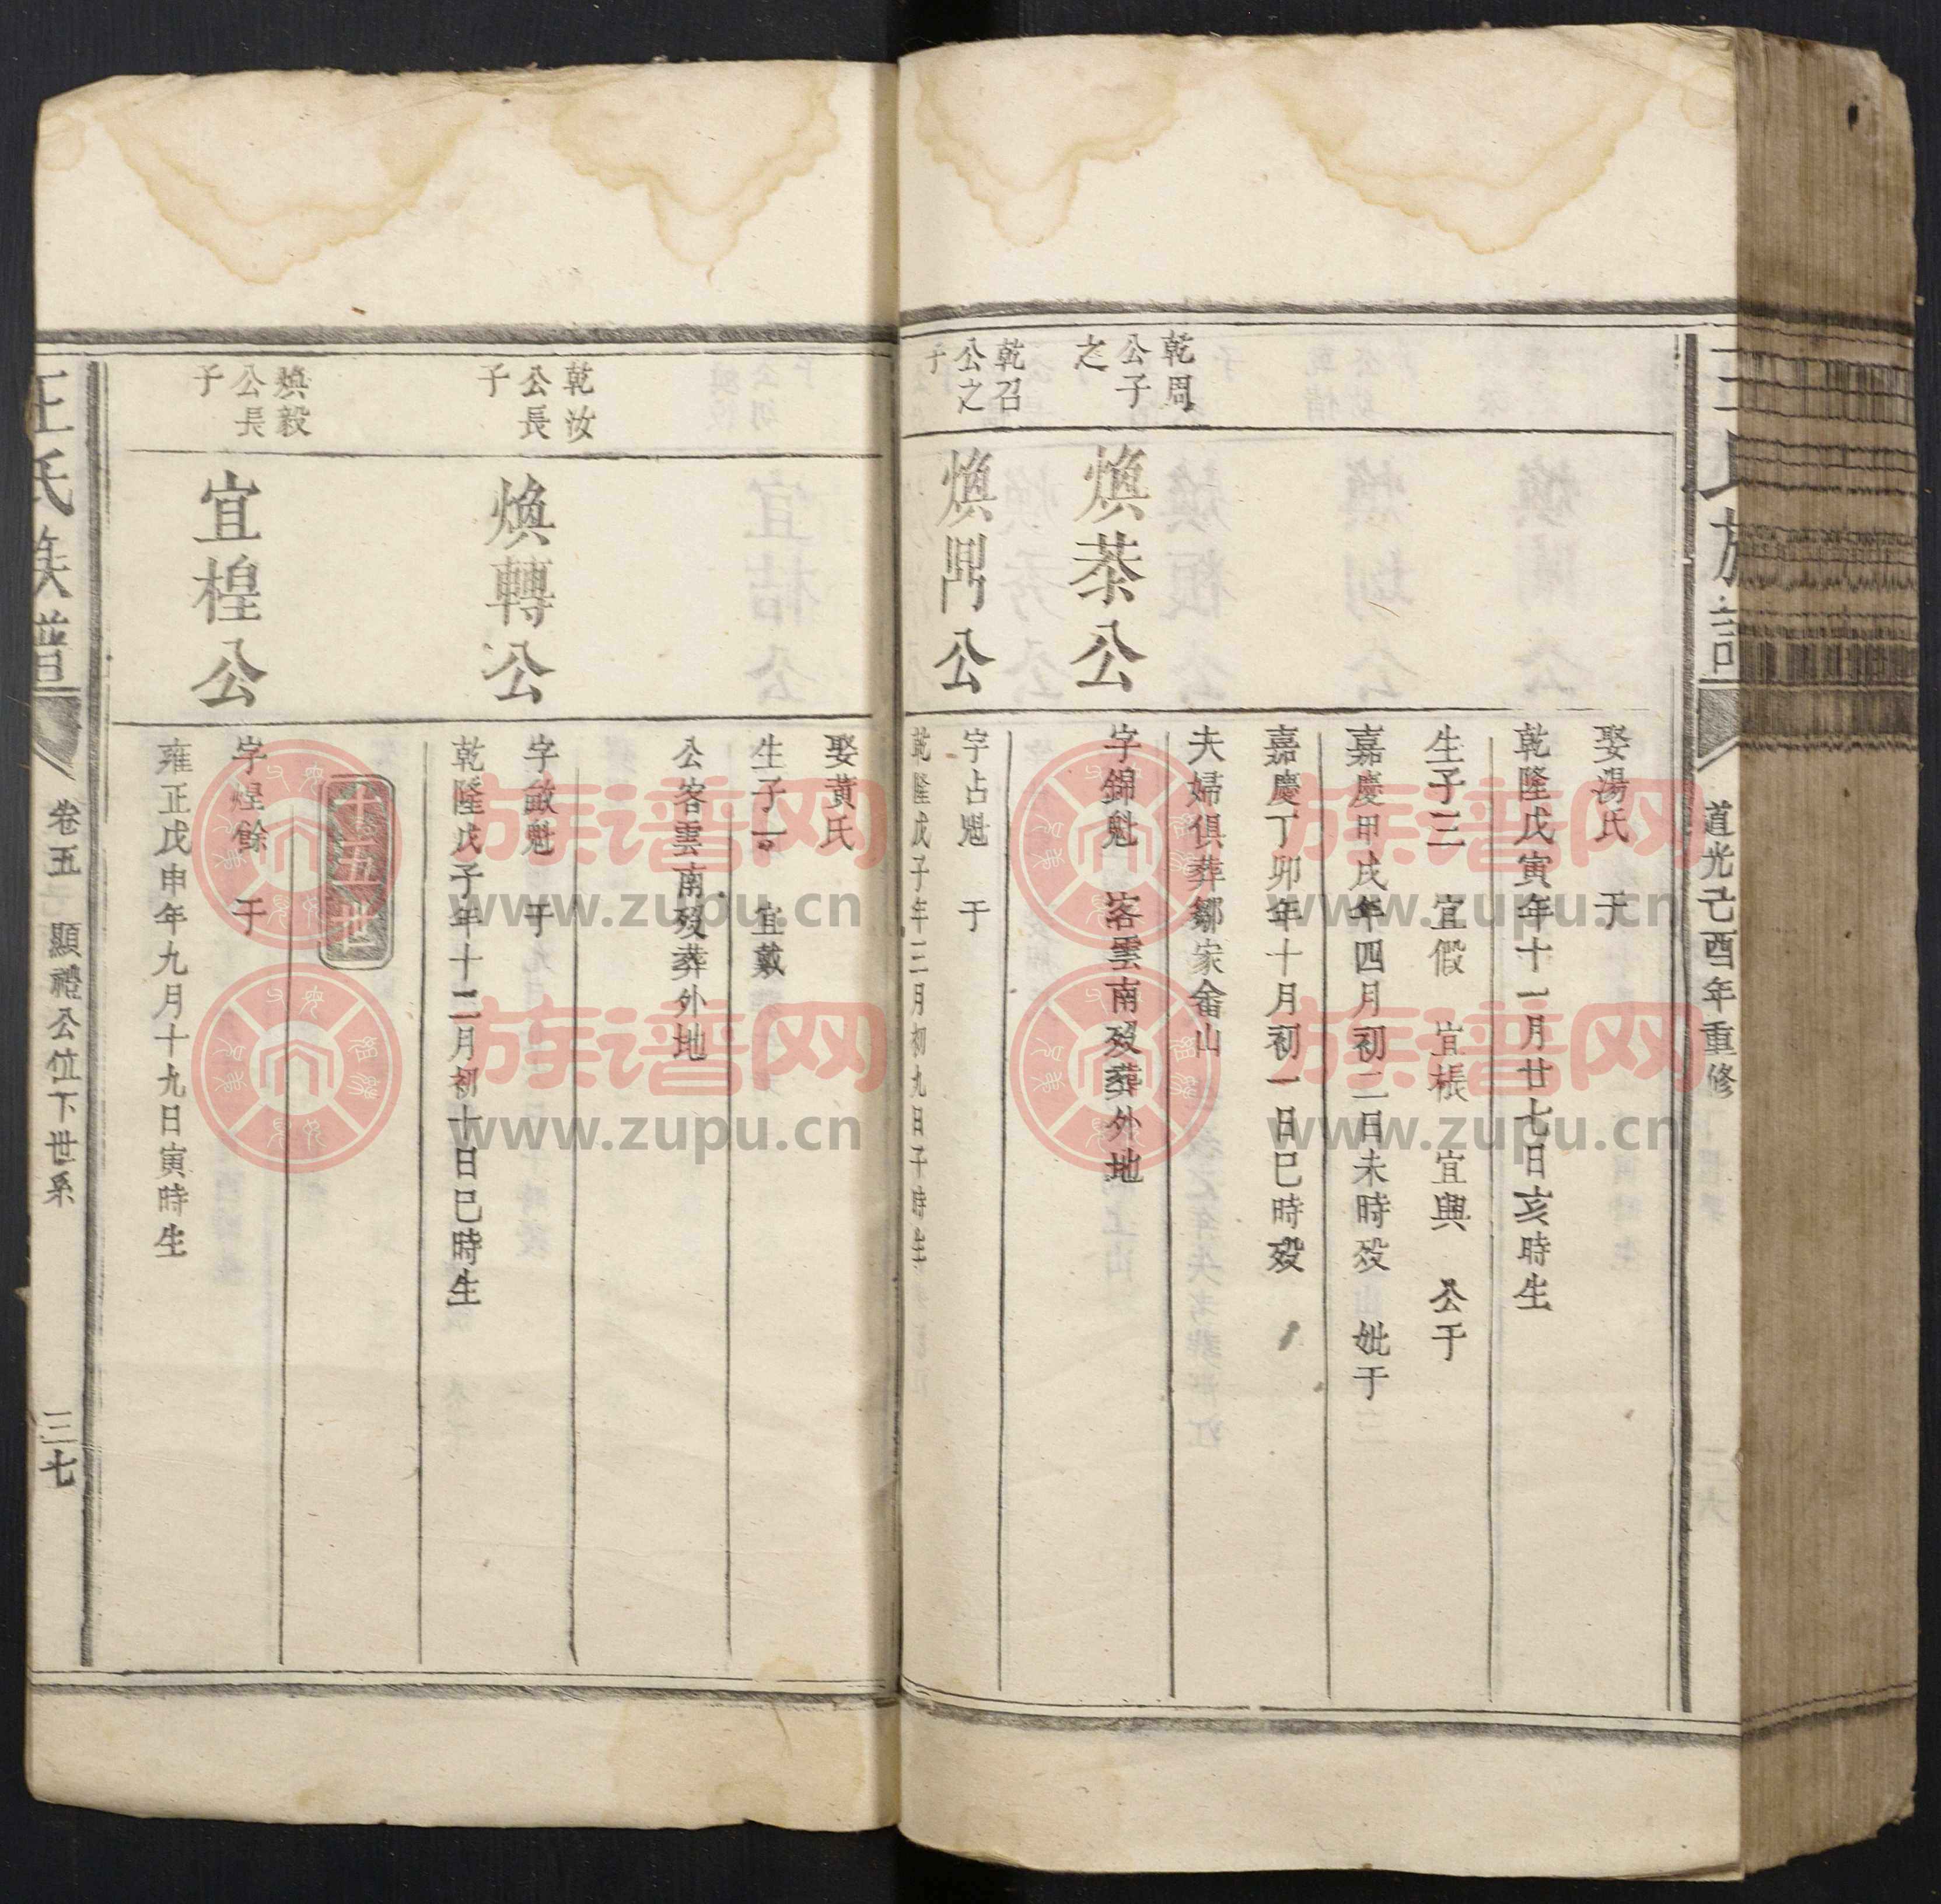 道光己酉年重修
娶湯氏 于
乾隆戊寅年十一月廿七日亥時生
生子三 宜假 宜棖 宜興 公于
嘉慶甲戌年四月初二日未時歿妣于
嘉慶丁卯年十月初一日巳時歿
夫婦俱葬鄒家畲山
乾周
公子
之
煥菾公
字錦魁 客雲南歿葬外地
乾召
公之
子
煥鼎公
字占魁 于
乾隆戊子年三月初九日子時生
娶黃氏
生子一 宜戴
公客雲南歿葬外地
乾汝
公長
子
煥轉公
字啟魁 于
乾隆戊子年十二月初十日巳時生
十五世
煥毅
公長
子
宜楻公
字煌餘 于
雍正戊申年九月十九日寅時生
王氏族譜
卷五 顯禮公位下世系
三七
族谱网
www.zupu.cn
族谱网
www.zupu.cn
族谱网
www.zupu.cn
族谱网
www.zupu.cn